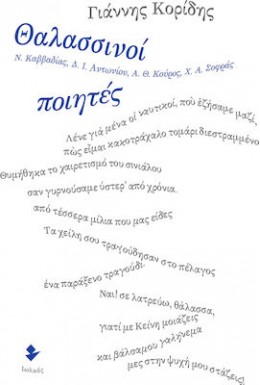 Γιάννης Κορίδης
Θαλασσινοί
Ν. Καββαδίας, Δ. Ι. Αντωνίου, Α. Θ. Κούρος, Χ. Α. Σοφράς
ποιητές
Λένε γιά μένα οἱ ναυτικοί, ποὺ ἐζήσαμε μαζί,
πὼς εἶμαι κακοτράχαλο τομάρι διεστραμμένο
Θυμήθηκα το χαιρετισμό του σινιάλου
σαν γυρνούσαμε ύστερ' από χρόνια.
από τέσσερα μίλια που μας είδες
Τα χείλη σου τραγουδησαν στο πέλαγος
ένα παράξενο τραγούδι·
Ναι! σε λατρεύω, θάλασσα,
γιατί με Κείνη μοιάζεις
και βάλσαμου γαλήνεμα
μες στην ψυχή μου στάζεις!
Ιωλκός